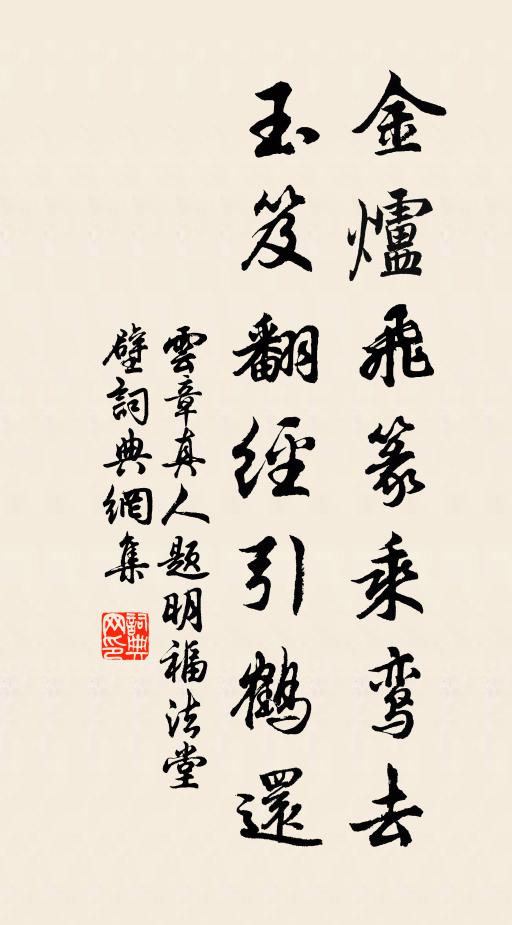 金爐飛篆乘鸾去
玉笈翻經引鶴還
雲章真人题明福法堂
壁詞典網集
詞典网印